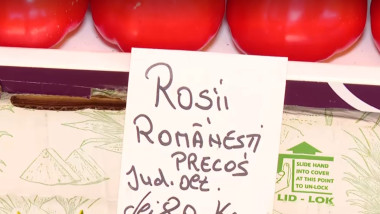 Rosii
ROMÂNESTI
PRECOS
Jud. Det.
SLIDE HAND
INTO COVER
AT THIS POINT
TO UN-LOCK
LID - LOK